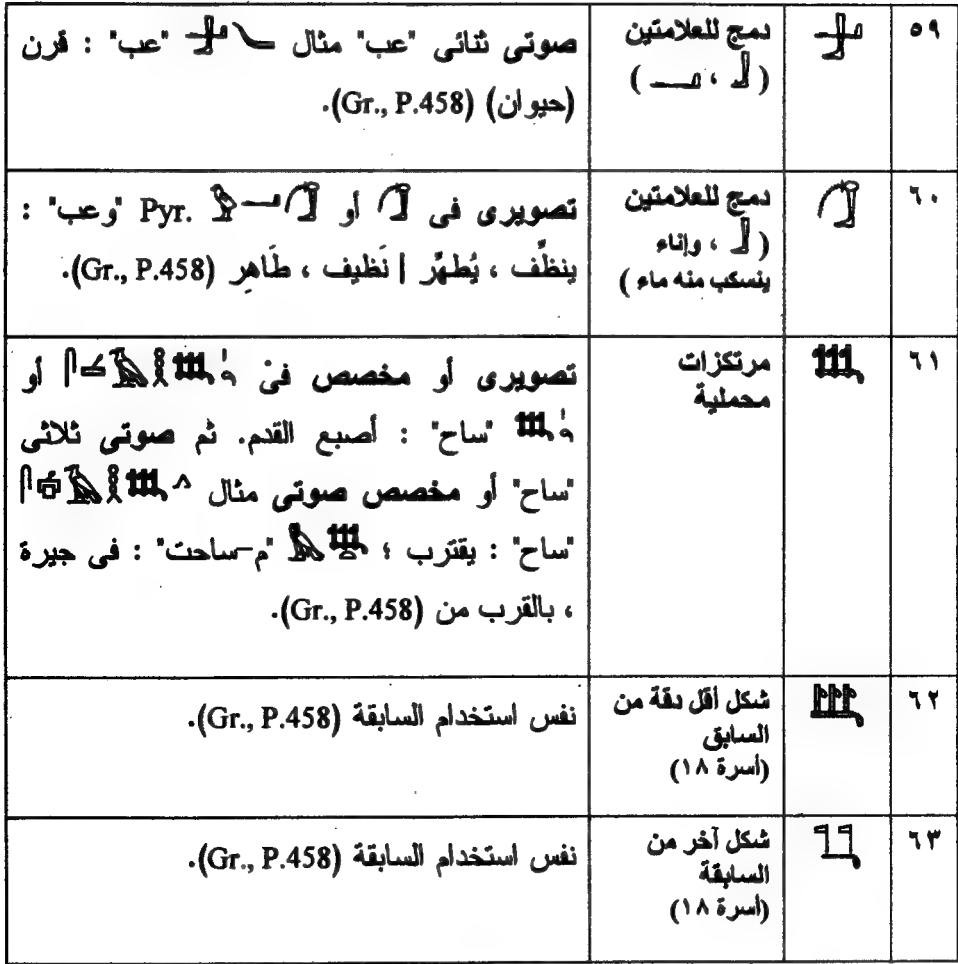 ٥٩
𓃁
دمج للعلامتين
( 𓃀 ، 𓂝 )
صوتى ثنائى "عب" مثال 𓃁𓄏 "عب" : قرن
(حيوان) (Gr., P.458).
٦٠
𓃂
دمج للعلامتين
( 𓃀 ، وإناء
ينسكب منه ماء )
تصويرى فى 𓃂 أو 𓃂𓂝𓅱 Pyr. "وعب" :
ينظِّف ، يُطهِّر | نَظيف ، طَاهِر (Gr., P.458).
٦١
𓃃
مرتكزات
محملية
تصويرى أو مخصص فى 𓋴𓄿𓎛𓃃 أو
𓃃 "ساح" : أصبع القدم. ثم صوتى ثلاثى
"ساح" أو مخصص صوتى مثال 𓋴𓄿𓎛𓃃
"ساح" : يقترب ؛ 𓅓𓃃 "م-ساحت" : فى جيرة
، بالقرب من (Gr., P.458).
٦٢
𓃄
شكل أقل دقة من
السابق
(أسرة ١٨)
نفس استخدام السابقة (Gr., P.458).
٦٣
𓃅
شكل آخر من
السابقة
(أسرة ١٨)
نفس استخدام السابقة (Gr., P.458).